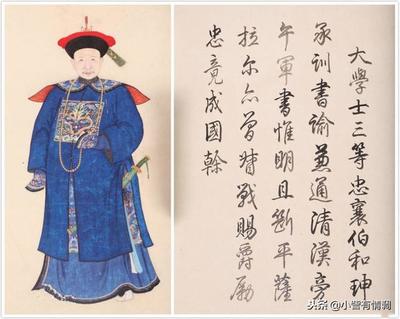 大學士三等忠襄伯和珅
承訓書諭兼通清漢旁
午軍書惟明且斷平薩
拉尔亦曾督戰賜爵勵
忠竟成國幹
头条 @小智有情调